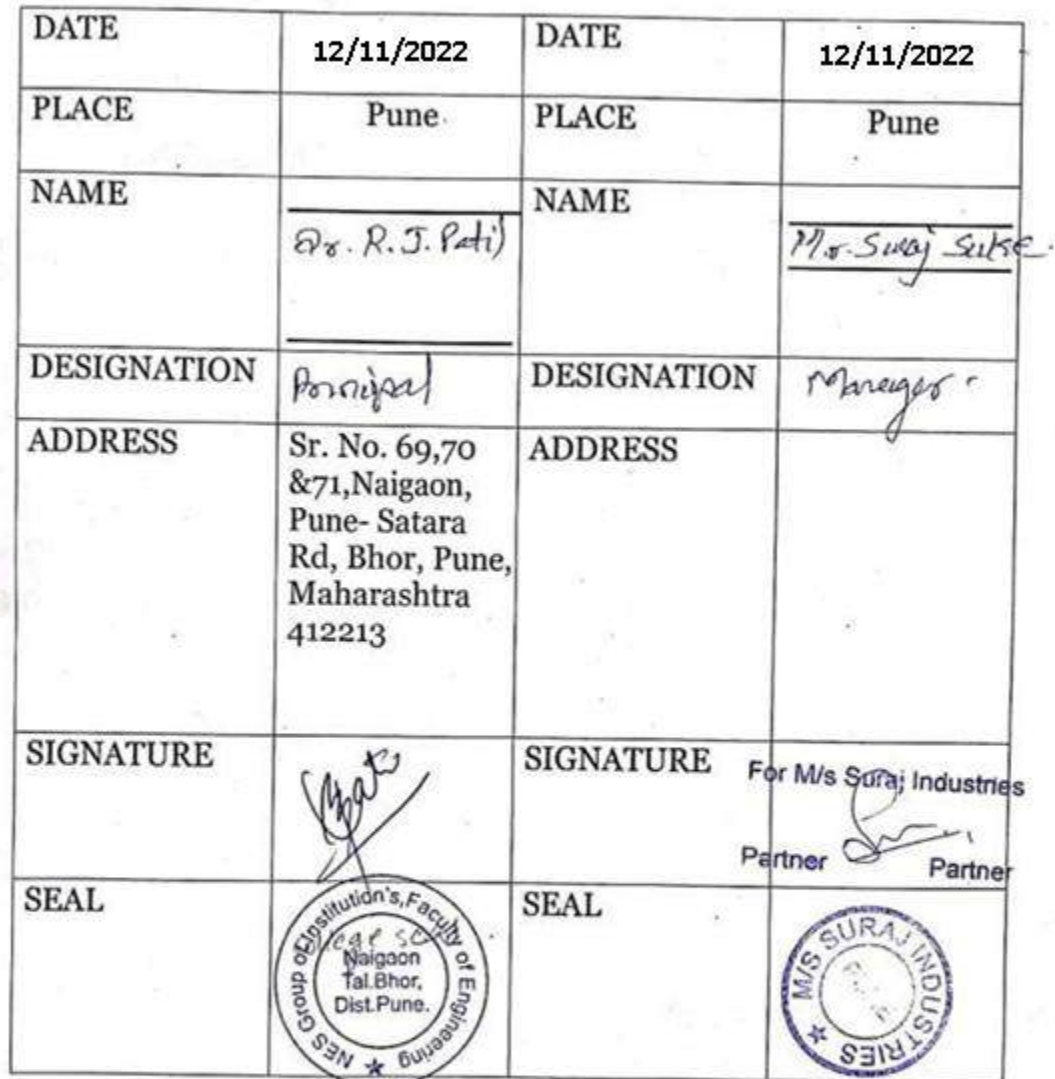 DATE 12/11/2022 DATE 12/11/2022
PLACE Pune PLACE Pune
NAME Dr. R. J. Patil NAME Mr. Suraj
DESIGNATION Principal DESIGNATION Manager
ADDRESS Sr. No. 69,70 ADDRESS
&71,Naigaon,
Pune- Satara
Rd, Bhor, Pune,
Maharashtra
412213
SIGNATURE SIGNATURE For M/s Suraj Industries
Partner Partner
SEAL SEAL
NES Group of Institution's,Faculty of Engineering
Naigaon
Tal.Bhor,
Dist.Pune.
M/S SURAJ INDUSTRIES